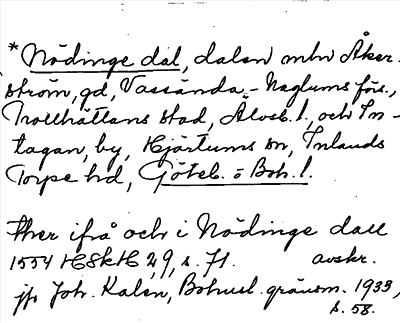 *Nödinge dal, dalen mln Åker-
ström, gd, Vassända-Naglums förs.,
Trollhättans stad, Älvsb. l., och In-
tagan, by, Hjärtums sn, Inlands
Torpe hd, Göteb. o Boh. l.
ther ifrå och i Nödinge dall
1554 HSkH 29, s. 71. avskr.
jfr Joh. Kalén, Bohusl. gränsm. 1933,
s. 58.